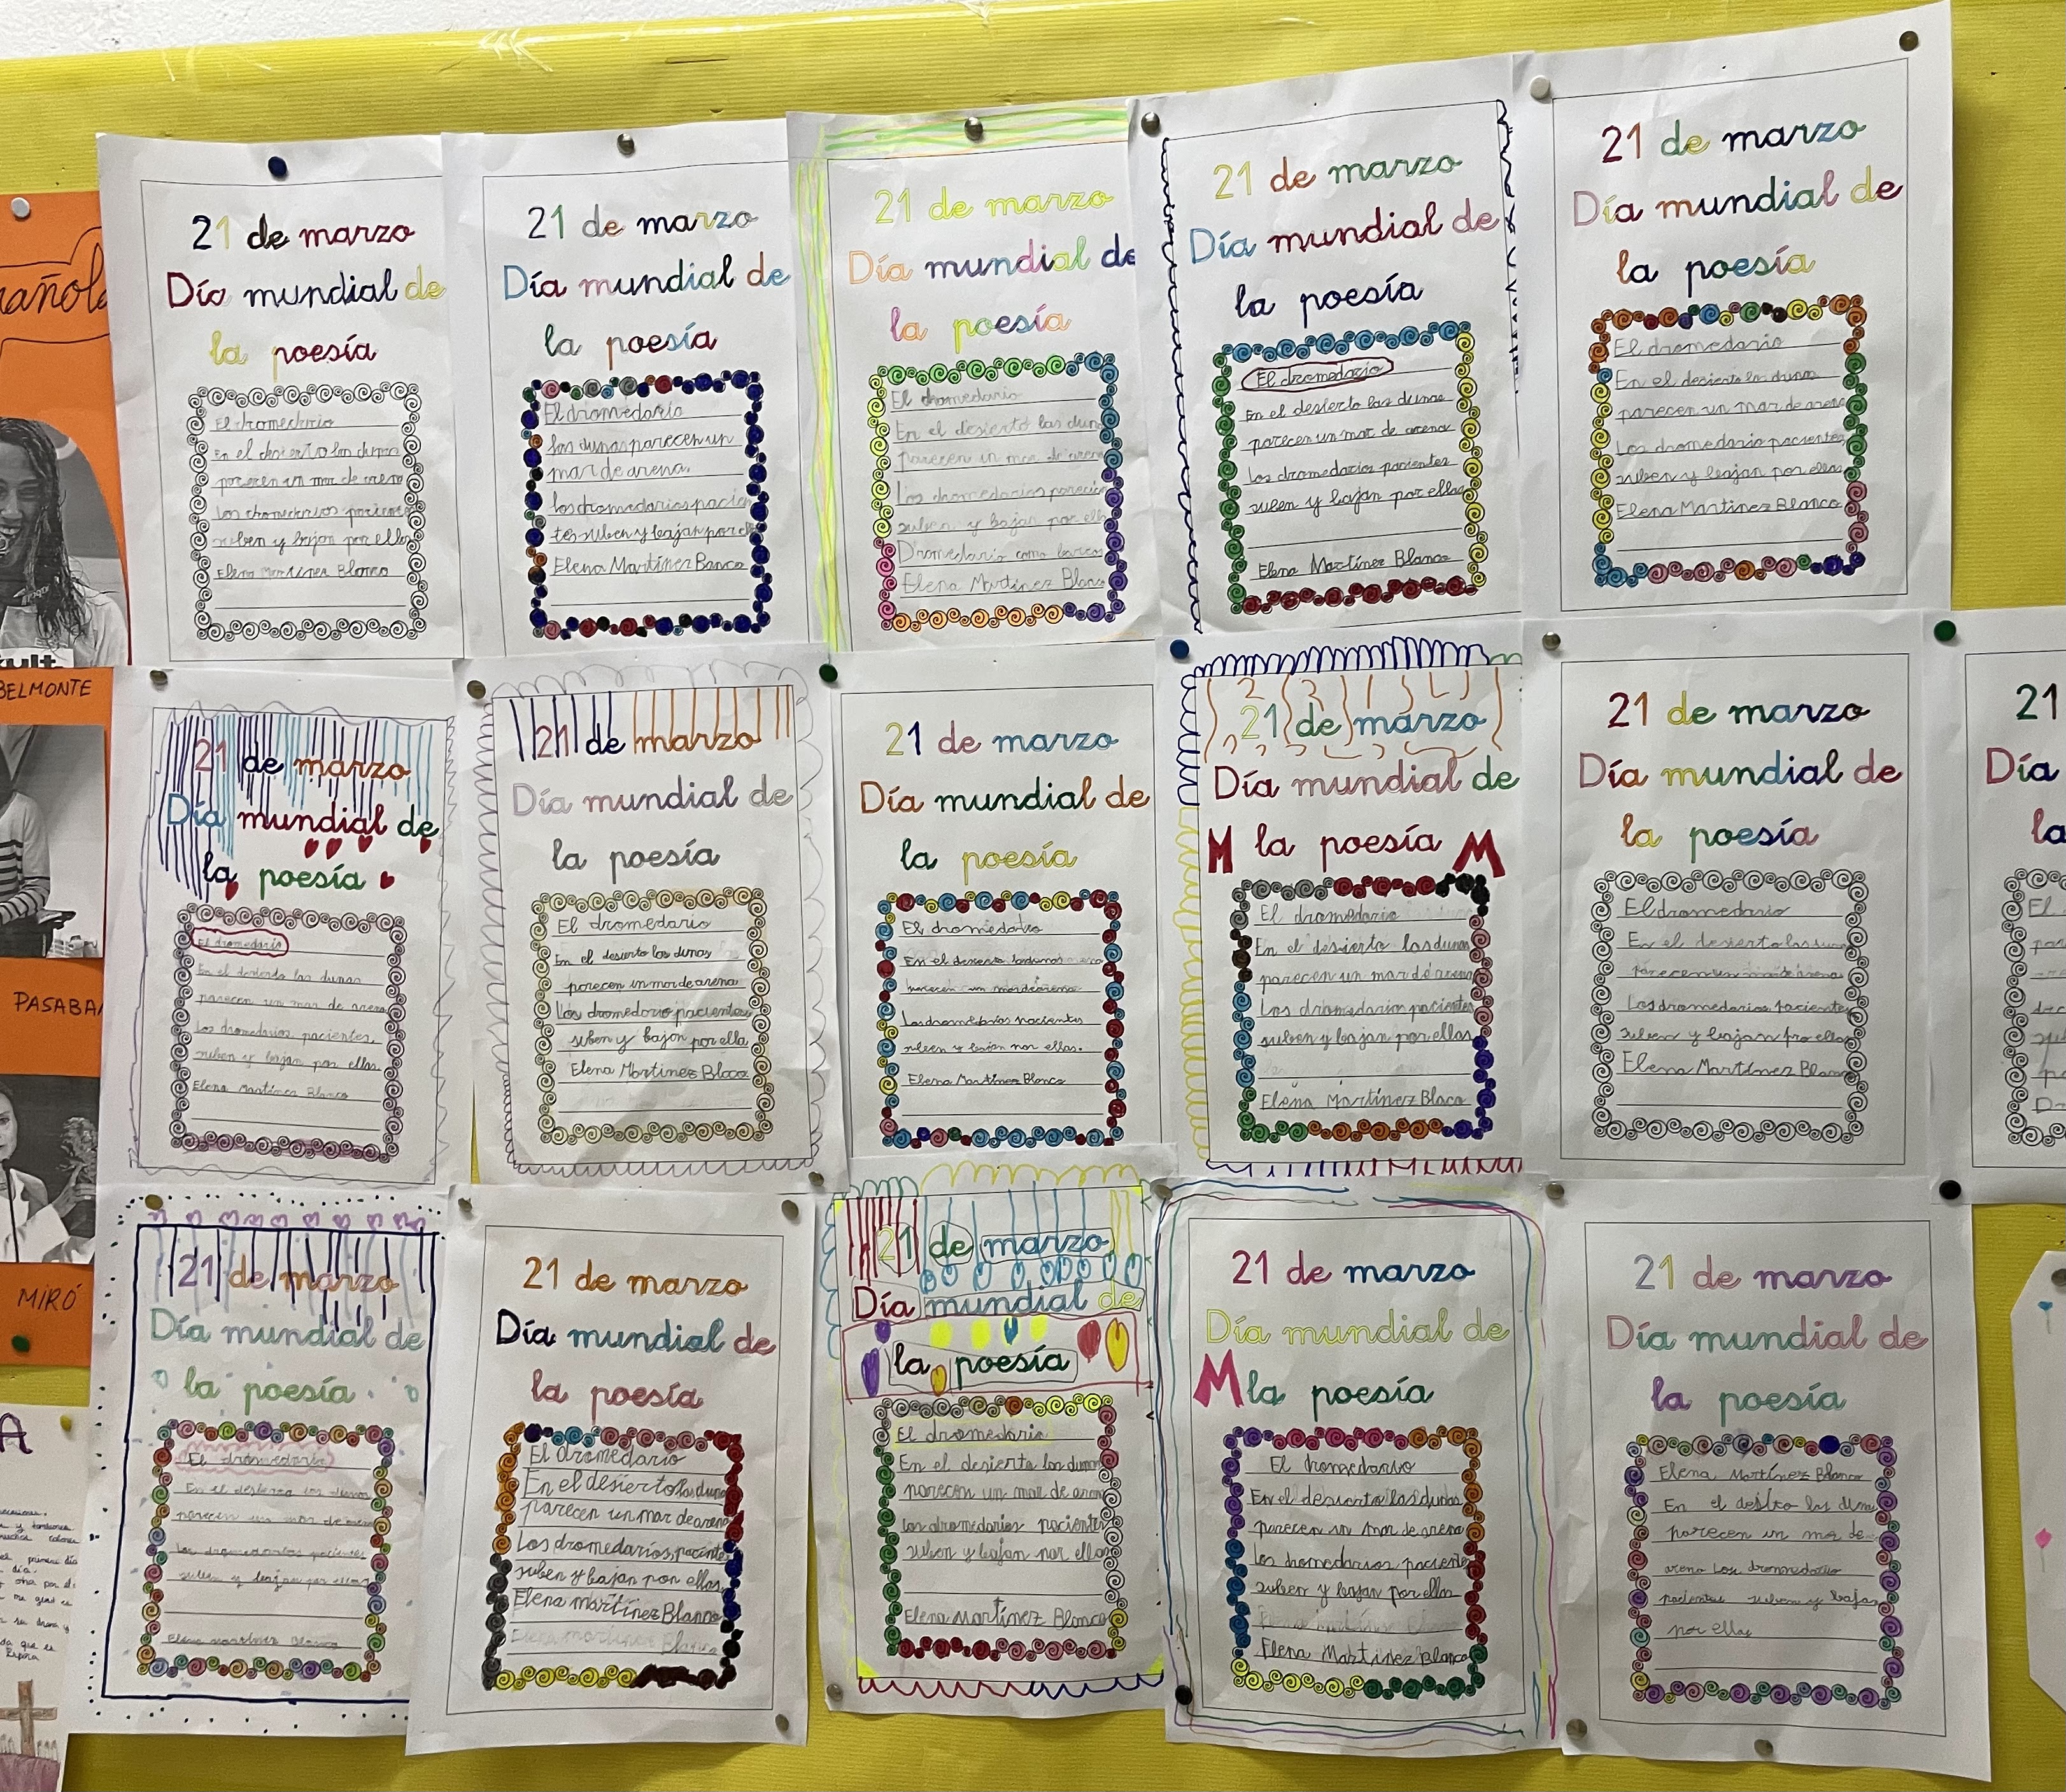 21 de marzo
Día mundial de
la poesía
El dromedario
En el desierto las dunas
parecen un mar de arena
Los dromedarios pacientes
suben y bajan por ellas
Elena Martínez Blanco
21 de marzo
Día mundial de
la poesía
El dromedario
las dunas parecen un
mar de arena.
los dromedarios pacien
tes suben y bajan por ella
Elena Martínez Banco
21 de marzo
Día mundial de
la poesía
El dromedario
En el desierto las duna
parecen un mar de arena
Los dromedarios
suben y bajan por ella
Dromedario como barcos
Elena Martínez Blanc
21 de marzo
Día mundial de
la poesía
El dromedario
En el desierto las dunas
parecen un mar de arena
los dromedarios pacientes
suben y bajan por ellas
Elena Martínez Blanco
21 de marzo
Día mundial de
la poesía
El dromedario
En el desierto las dunas
parecen un mar de arena
Los dromedario pacientes
suben y bajan por ellas
Elena Martínez Blanco
BELMONTE
PASABA
MIRÓ
21 de marzo
Día mundial de
la poesía
El dromedario
En el desierto las dunas
parecen un mar de arena
Los dromedarios pacientes,
suben y bajan por ellas.
Elena Martínez Blanco
21 de marzo
Día mundial de
la poesía
El dromedario
En el desierto las dunas
parecen un mar de arena
Los dromedario pacientes
suben y bajan por ella
Elena Martinez Blaco
21 de marzo
Día mundial de
la poesía
El dromedario
En el desierto
un mar de arena
Los dromedarios pacientes
suben y bajan por ellas.
Elena Martínez Blanco
21 de marzo
Día mundial de
M la poesía M
El dromedario
En el desierto las dunas
parecen un mar de arena
Los dromedarios pacientes
suben y bajan por ellas
Elena Martínez Blaco
21 de marzo
Día mundial de
la poesía
El dromedario
En el desierto las dunas
parecen un mar de arena
Los dromedarios pacientes
suben y bajan pro ellas
Elena Martínez Blanco
21
Día
la
21 de marzo
Día mundial de
la poesía
El dromedario
En el las dunas
parecen un mar de arena
Los dromedarios pacientes
suben y bajan por ellas
Elena martínez Blanco
21 de marzo
Día mundial de
la poesía
El dromedario
En el desierto las dunas
parecen un mar de arena
Los dromedarios, paciente
suben y bajan por ellas.
Elena martínez Blanco
Elena martínez Blanco
21 de marzo
Día mundial de
la poesía
El dromedario
En el desierto las dunas
parecen un mar de arena
los dromedarios pacientes
suben y bajan por ellas
Elena Martínez Blanco
21 de marzo
Día mundial de
M la poesía
El dromedario
En el desierto las dunas
parecen un mar de arena
los dromedarios paciente
suben y bajan por ellas
Elena Martínez Blanco
21 de marzo
Día mundial de
la poesía
Elena Martínez Blanco
En el las dunas
parecen un mar de
arena Los dromedario
pacientes suben y bajan
por ellas